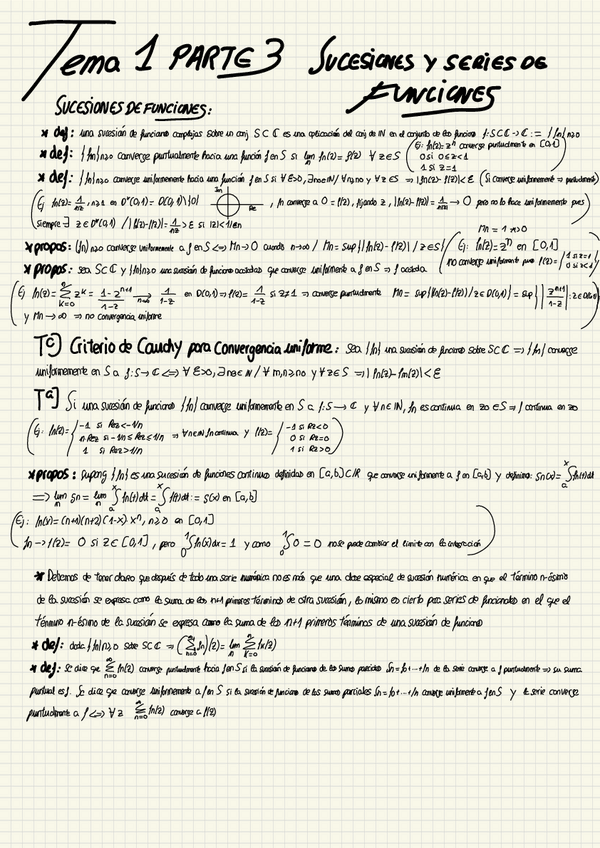 Tema 1 PARTE 3 SUCESIONES Y SERIES DE
FUNCIONES
SUCESIONES DE FUNCIONES:
* def: una sucesión de funciones complejas sobre un conj S⊂ℂ es una aplicación del conj de ℕ en el conjunto de las funciones f:S⊂ℂ→ℂ := {fn}n≥0
* def: {fn}n≥0 converge puntualmente hacia una función f en S si lim fn(z)=f(z) ∀z∈S (Ej: fn(z)=zⁿ converge puntualmente en [0,1] 0 si 0≤z<1 1 si z=1)
* def: {fn}n≥0 converge uniformemente hacia una función f en S si ∀ε>0, ∃n₀∈ℕ / ∀n≥n₀ y ∀z∈S ⇒ |fn(z)-f(z)|<ε (Si converge uniformemente ⇒ puntualmente)
(Ej fn(z)=1/nz, n≥1 en D*(0,1)=D(0,1)\{0} Im Re, fn converge a 0=f(z), fijando z, |fn(z)-f(z)|=1/n|z|→0 pero no lo hace uniformemente pues
siempre ∃ z∈D*(0,1) / |fn(z)-f(z)|=1/n|z|>ε si |z|<1/εn
Mn=1↛0
* propos: {fn}n≥0 converge uniformemente a f en S ⇔ Mn→0 cuando n→∞ / Mn=sup{|fn(z)-f(z)| / z∈S} (Ej: fn(z)=zⁿ en [0,1] no converge uniformemente pues f(z)={1 si z=1, 0 si z<1})
* propos: sea S⊂ℂ y {fn}n≥0 una sucesión de funciones acotadas que converge uniformemente a f en S ⇒ f acotada.
(Ej fn(z)=Σ_{k=0}^{n} z^k=(1-z^{n+1})/(1-z) → 1/(1-z) en D(0,1) ⇒ f(z)=1/(1-z) si z≠1 ⇒ converge puntualmente Mn=sup{|fn(z)-f(z)| / z∈D(0,1)}=sup{|z^{n+1}/(1-z)|:z∈D(0,1)}
y Mn→∞ ⇒ no convergencia uniforme)
Tᶜ] Criterio de Cauchy para Convergencia uniforme: sea {fn} una sucesión de funciones sobre S⊂ℂ ⇒ {fn} converge
uniformemente en S a f:S→ℂ ⇔ ∀ε>0, ∃n₀∈ℕ / ∀m,n≥n₀ y ∀z∈S ⇒ |fn(z)-fm(z)|<ε
Tᵃ] Si una sucesión de funciones {fn} converge uniformemente en S a f:S→ℂ y ∀n∈ℕ, fn es continua en z₀∈S ⇒ f continua en z₀
(Ej: fn(z)={-1 si Rez<-1/n, nRez si -1/n≤Rez≤1/n, 1 si Rez>1/n ⇒ ∀n∈ℕ fn continua y f(z)={-1 si Rz<0, 0 si Rz=0, 1 si Rz>0)
* propos: supong {fn} es una sucesión de funciones continuas definidas en [a,b]⊂ℝ que converge uniformemente a f en [a,b] y definimos: gn(x)=∫ₐˣ fn(t)dt
⇒ lim gn = lim ∫ₐˣ fn(t)dt = ∫ₐˣ f(t)dt := g(x) en [a,b]
(Ej: fn(x)=(n+1)(n+2)(1-x)xⁿ, n≥0 en [0,1]
fn→f(z)=0 si z∈[0,1], pero ∫₀¹ fn(x)dx=1 y como ∫₀¹ 0=0 no se puede cambiar el límite con la integración)
* Debemos de tener claro que después de todo una serie numérica no es más que una clase especial de sucesión numérica en que el término n-ésimo
de la sucesión se expresa como la suma de los n+1 primeros términos de otra sucesión, lo mismo es cierto para series de funciones en el que el
término n-ésimo de la sucesión se expresa como la suma de los n+1 primeros términos de una sucesión de funciones
* def: dada {fn}n≥0 sobre S⊂ℂ ⇒ (Σ_{n=0}^{∞} fn)(z)=lim Σ_{k=0}^{n} fk(z)
* def: Se dice que Σ_{n=0}^{∞} fn(z) converge puntualmente hacia f en S si la sucesión de funciones de las sumas parciales Sn=f0+...+fn de la serie converge a f puntualmente ⇒ su suma
puntual es f. Se dice que converge uniformemente a f en S si la sucesión de funciones de las sumas parciales Sn=f0+...+fn converge uniformemente a f en S y la serie converge
puntualmente a f ⇔ ∀z Σ_{n=0}^{∞} fn(z) converge a f(z)